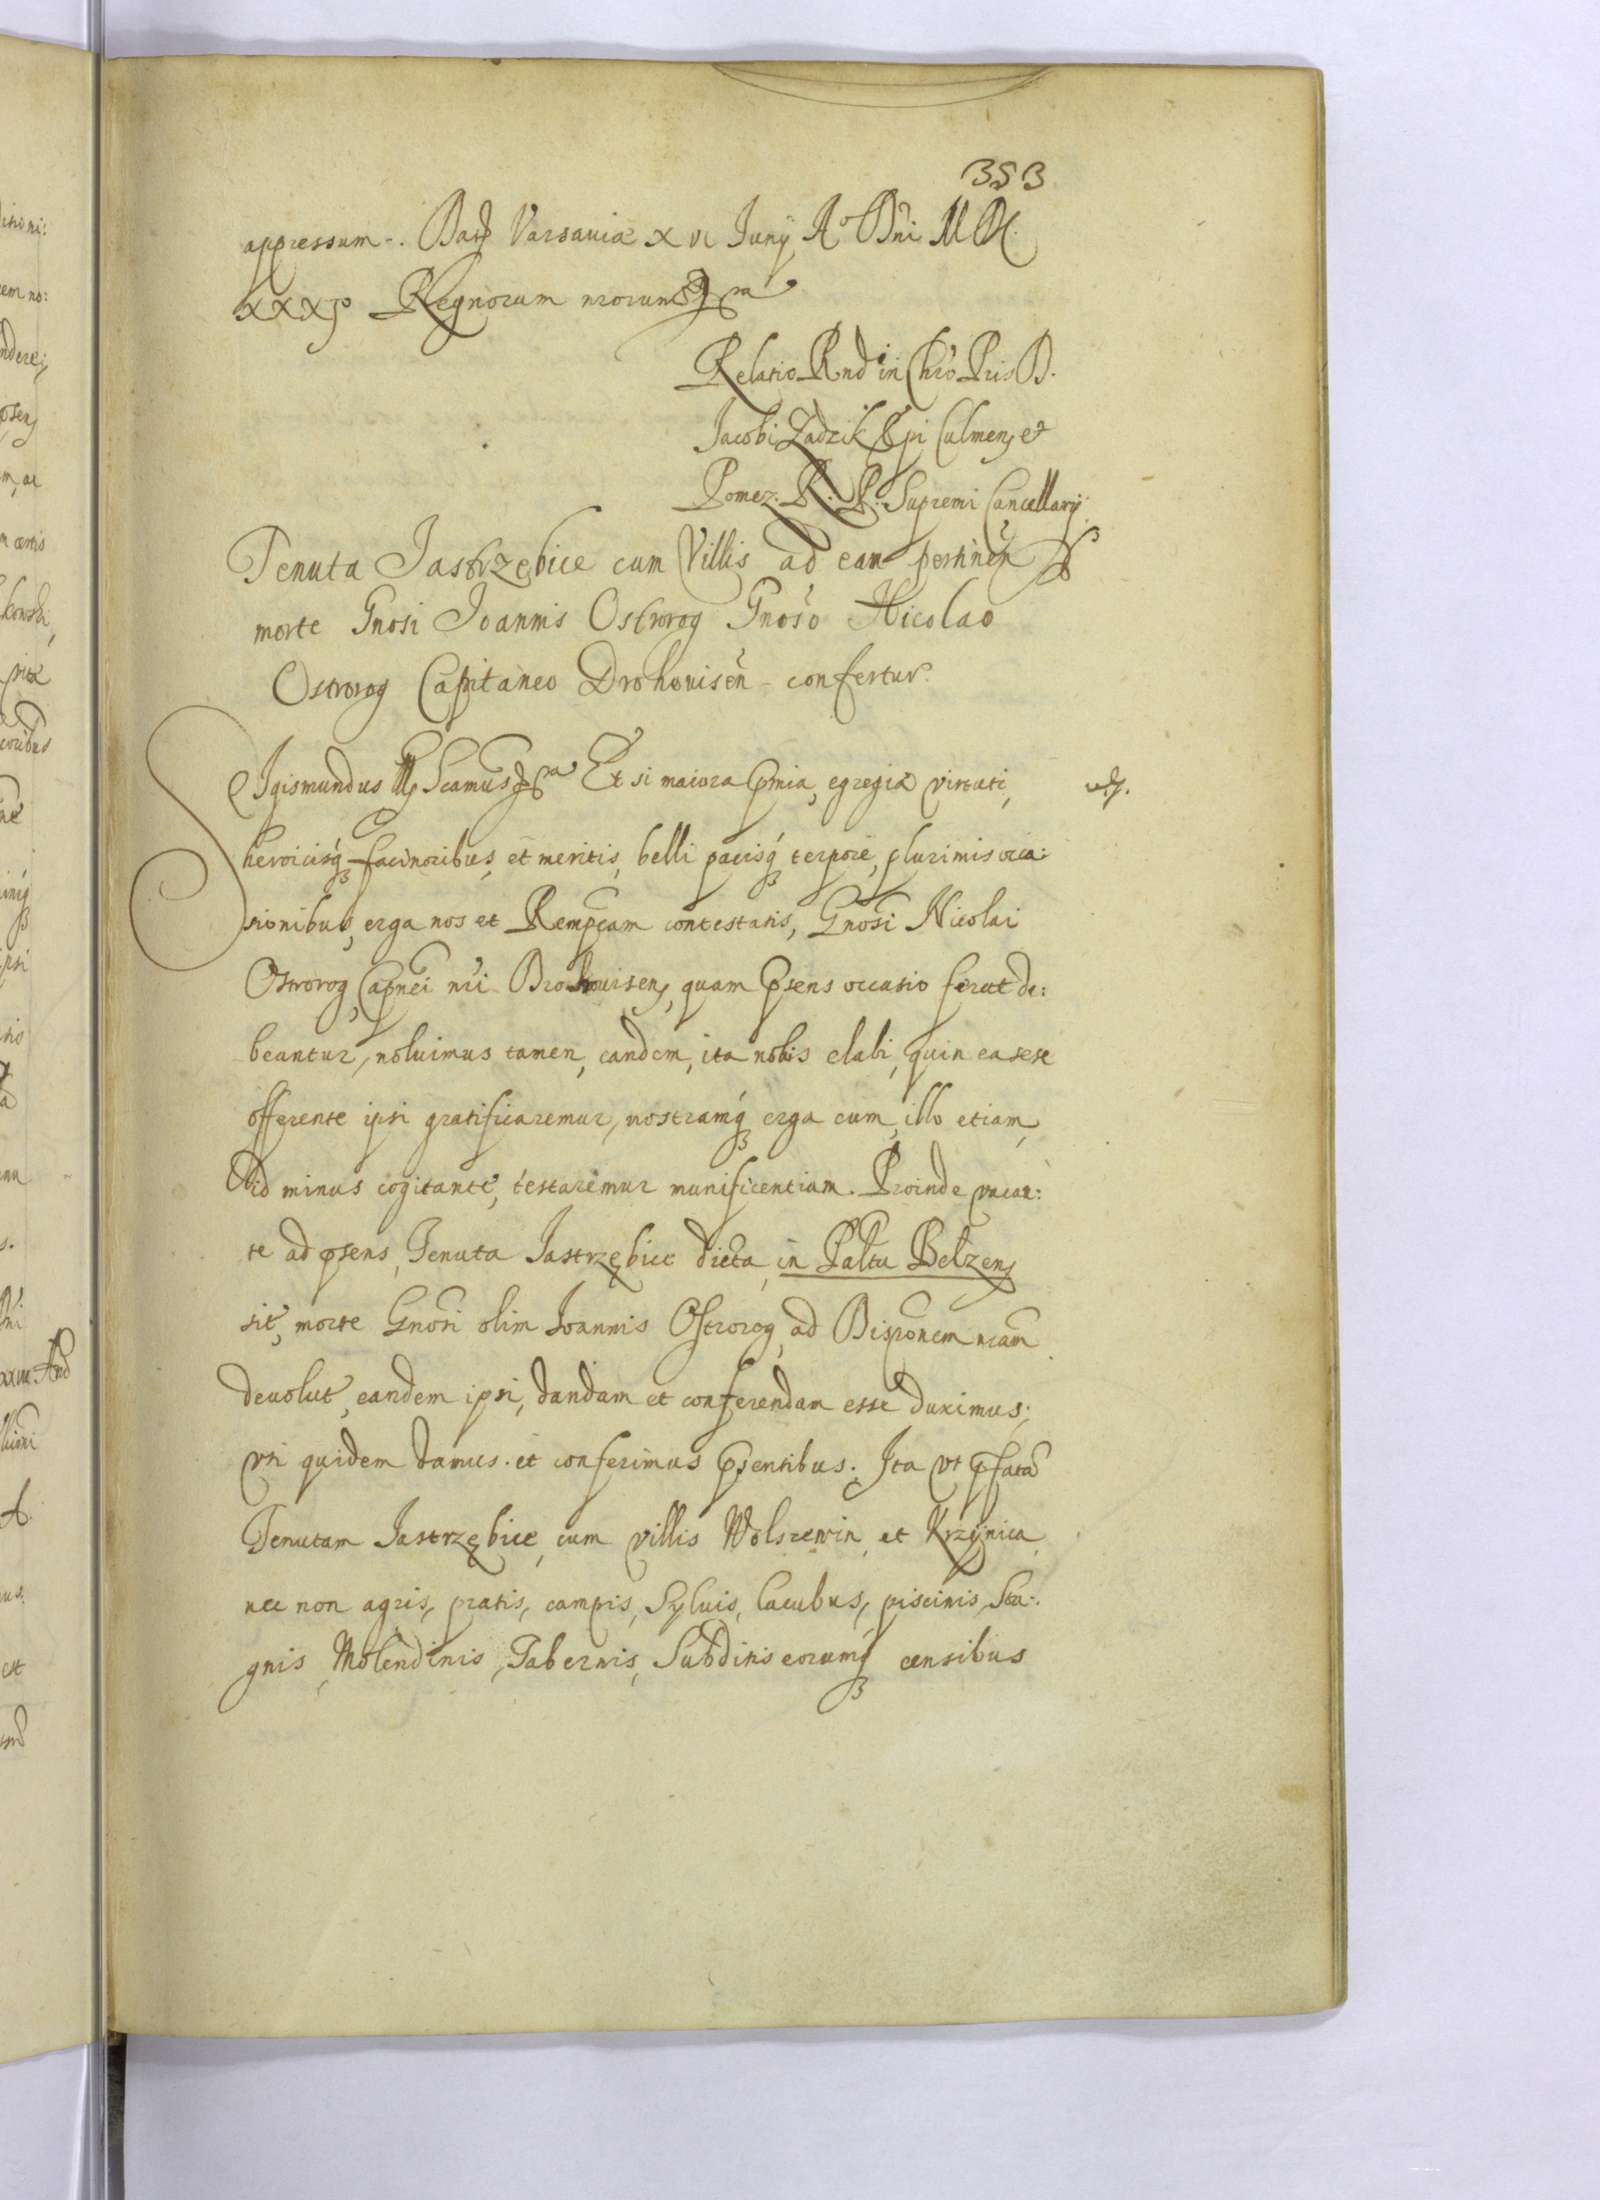 353
appressum. Dat Varsauiæ XVI Junÿ Ao Dni MDC.
XXXI Regnorum nrorum
Relatio Rnd in Chro Pris D.
Jacobi Zadzik Epi Culmen et
Pomez. R. P. Supremi Cancellarÿ.
Tenuta Jastrzębice cum Villis ad eam pertinen
morte Gnosi Joannis Ostrorog Gnoso Nicolao
Ostrorog Capitaneo Drohouisen confertur.
SIgismundus III Scamus Et si maiora pmia, egregiæ virtuti,
heroicisq facinoribus, et meritis, belli pacisq tempore, plurimis occa:
sionibus, erga nos et Rempcam contestatis, Gnosi Nicolai
Ostrorog, Capnei nri Drohouisen, quam psens occasio ferat de:
beantur, noluimus tamen, eandem, ita nobis elabi, quin ea sese
offerente ipsi gratificaremur, nostramq erga eum, illo etiam,
id minus cogitante, testaremur munificentiam. Proinde vacan:
te ad psens, Tenuta Jastrzębice dicta, in Paltu Belzen
sit, morte Gnosi olim Joannis Ostrorog, ad Disponem nram
deuolut, eandem ipsi, dandam et conferendam esse duximus;
vti quidem damus et conferimus psentibus. Ita vt pfata
Tenutam Jastrzębice, cum villis Wolszewin, et Krzÿnica,
nec non agris, pratis, campis, Syluis, lacubus, piscinis, Sta:
gnis, Molendinis, Tabernis, Subditis eorumq censibus